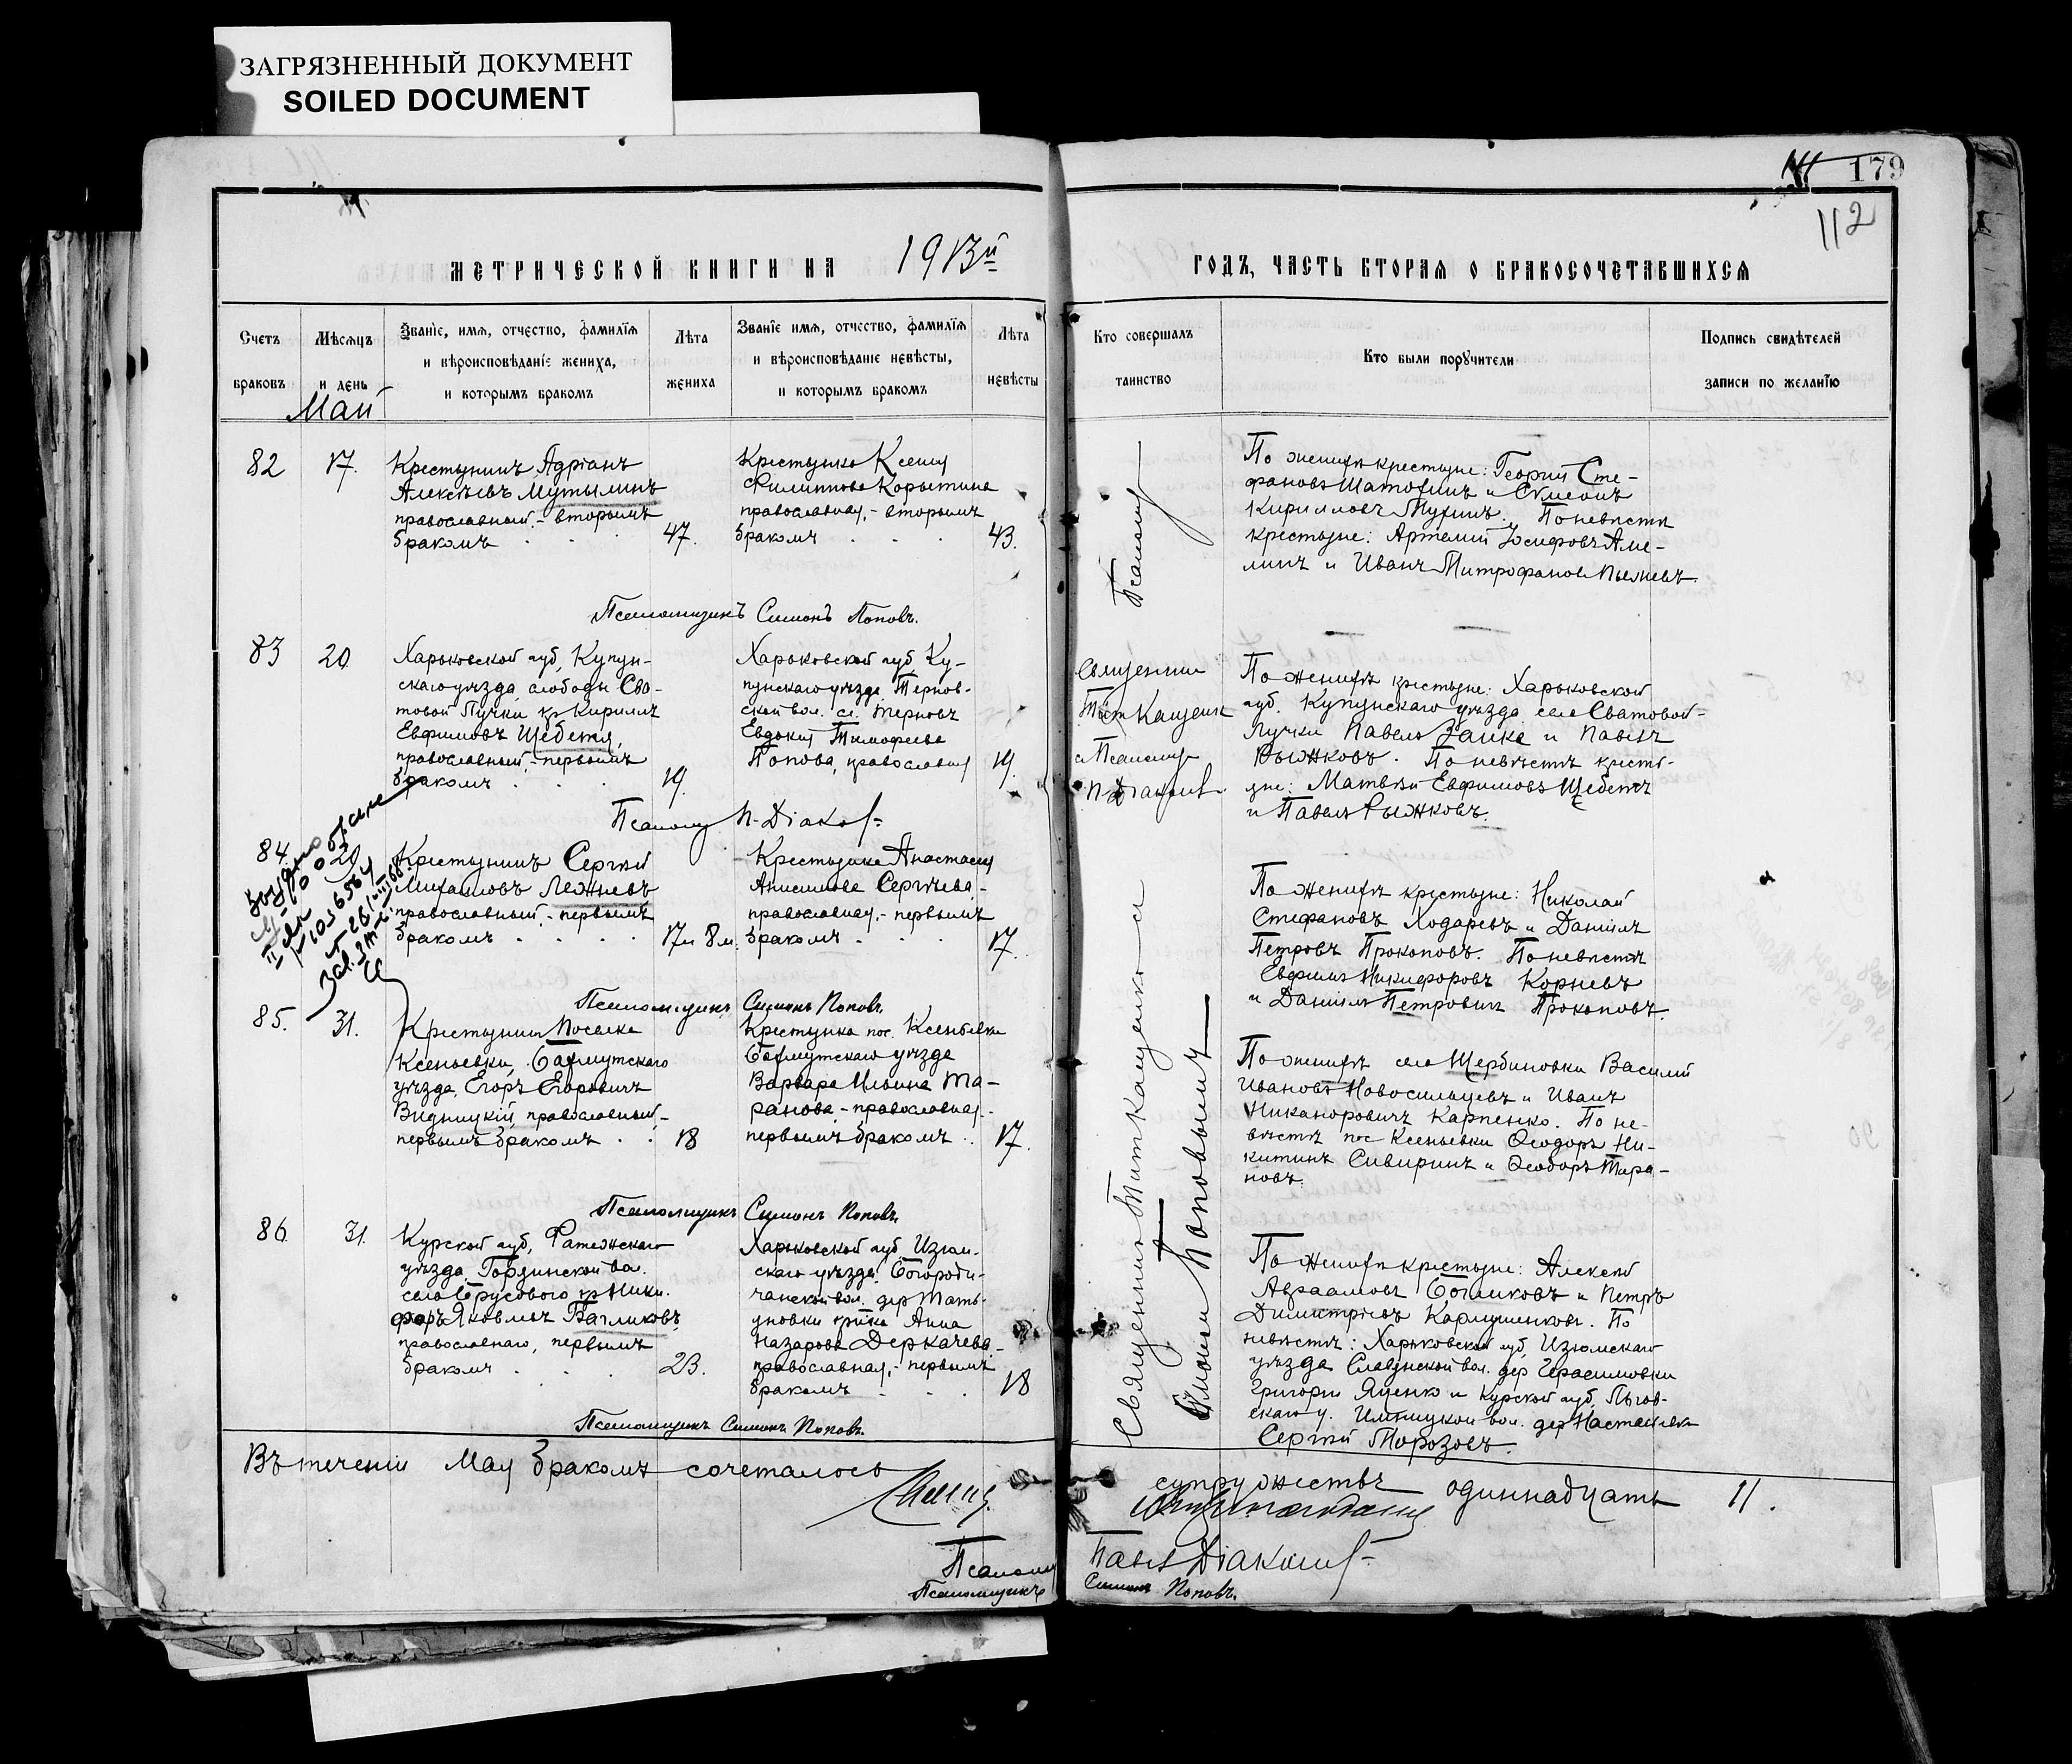 ЗАГРЯЗНЕННЫЙ ДОКУМЕНТ
SOILED DOCUMENT
179
112
МЕТРИЧЕСКОЙ КНИГИ НА 1913й
ГОДЪ, ЧАСТЬ ВТОРАЯ О БРАКОСОЧЕТАВШИХСЯ
Счетъ браковъ
Мѣсяцъ и день
Званіе, имя, отчество, фамилія и вѣроисповѣданіе жениха, и которымъ бракомъ
Лѣта жениха
Званіе имя, отчество, фамилія и вѣроисповѣданіе невѣсты, и которымъ бракомъ
Лѣта невѣсты
Кто совершалъ таинство
Кто были поручители
Подпись свидѣтелей записи по желанію
Май
82
17.
Крестьянинъ Адріанъ
Алексѣевъ Мутылинъ
православный, - вторымъ
бракомъ
47.
Крестьянка Ксенія
Филиппова Корыстина
православная, - вторымъ
бракомъ
43.
По женихѣ крестьяне: Георгій Сте-
фановъ и Симеонъ
Кирилловъ По невѣстѣ
крестьяне: Артемій Іосифовъ Аме-
линъ и Иванъ Митрофановъ
Псаломщикъ Симонъ Поповъ.
83
20
Харьковской губ, Купян-
скаго уѣзда слободы Сва-
товой Лучки кр Кириллъ
Евфимовъ Щебетя,
православный, - первымъ
бракомъ
19.
Харьковской губ, Ку-
пянскаго уѣзда Тернов-
ской вол. сл. Терновъ
Евдокія Тимофеева
Попова, православная
19.
Священник
Тит Кащенк
с Псаломщ
П Діаков
По женихѣ крестьяне: Харьковской
губ. Купянскаго уѣзда села Сватовой-
Лучки Павелъ Заика и Павелъ
Рыжковъ. По невѣстѣ кресть-
яне: Матвѣй Евфимовъ Щебетъ
и Павелъ Рыжковъ.
Псалом П. Діаков
84.
20
Крестьянинъ Сергѣй
Михаиловъ Лежневъ
православный, - первымъ
бракомъ
17 и 8 м.
Крестьянка Анастасія
Анисимова Сергѣева -
православная, - первымъ
бракомъ
17.
По женихѣ крестьяне: Николай
Стефановъ Ходаревъ и Даніилъ
Петровъ Прокоповъ. По невѣстѣ
Евфимъ Никифоровъ Корневъ
и Даніилъ Петровичъ Прокоповъ.
Псаломщикъ Симонъ Поповъ.
85.
31.
Крестьянинъ поселка
Ксеньевки, Бахмутскаго
уѣзда, Егоръ Егоровичъ
Видницкій, православный, -
первымъ бракомъ
18
Крестьянка пос. Ксеньевки
Бахмутскаго уѣзда
Варвара Ильина Та-
ранова, - православная, -
первымъ бракомъ
17.
По женихѣ села Щербиновки Василій
Ивановъ Новосильцевъ и Иванъ
Никаноровичъ Карпенко. По не-
вѣстѣ пос Ксеньевки Ѳеодоръ Ни-
китинъ Сивиринъ и Ѳеодоръ Тара-
новъ.
Псаломщикъ Симонъ Поповъ.
86.
31.
Курской губ, Фатежскаго
уѣзда, вол.
села кр Ники-
форъ Яковлевъ Багликовъ,
православнаго, первымъ
бракомъ
23.
Харьковской губ, Изюм-
скаго уѣзда, Богороди-
чанской вол. дер Тать-
яновки кр-ка Анна
Назарова Деркачева, -
православная, - первымъ
бракомъ
18
По женихѣ крестьяне: Алексѣй
Авраамовъ и Петръ
Димитріевъ По
невѣстѣ: Харьковской губ, Изюмскаго
уѣзда Славянской вол. дер Герасимовки
Григорій Яценко и Курской губ, Льгов-
скаго у. вол. дер
Сергѣй Морозовъ.
Священникъ Титъ Кащенко и Псаломщ
Симономъ Поповымъ
Псаломщикъ Симонъ Поповъ.
Въ теченіи Мая бракомъ сочеталось супружествъ одиннадцать 11.
Псалом Павел Діаков
Псаломщикъ Симонъ Поповъ.